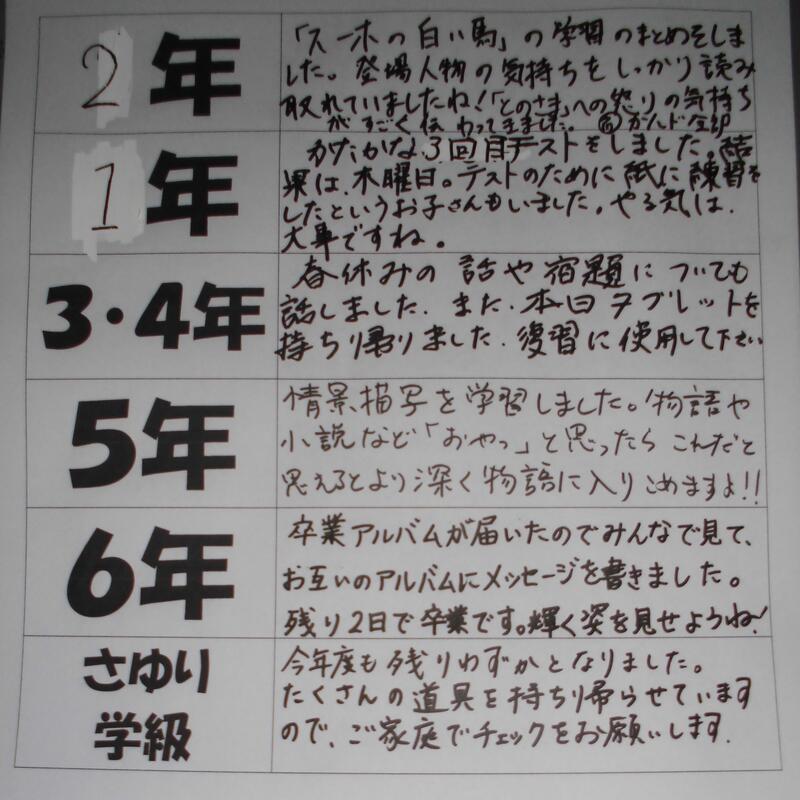 2年
「スーホの白い馬」の学習のまとめをしま
した。登場人物の気持ちをしっかり読み
取れていましたね!「とのさま」への怒りの気持ち
がすごく伝わってきました。
1年
かたかな3回目テストをしました。結
果は、木曜日。テストのために紙に練習を
したというお子さんもいました。やる気は、
大事ですね。
3・4年
春休みの話や宿題についても
話しました。また、本日タブレットを
持ち帰りました。復習に使用して下さい
5年
情景描写を学習しました。物語や
小説など「おやっ」と思ったら こんだと
思えるとより深く物語に入りこめますよ!!
6年
卒業アルバムが届いたのでみんなで見て、
お互いのアルバムにメッセージを書きました。
残り2日で卒業です。輝く姿を見せようね!
さゆり
学級
今年度も残りわずかとなりました。
たくさんの道具を持ち帰らせています
ので、ご家庭でチェックをお願いします.